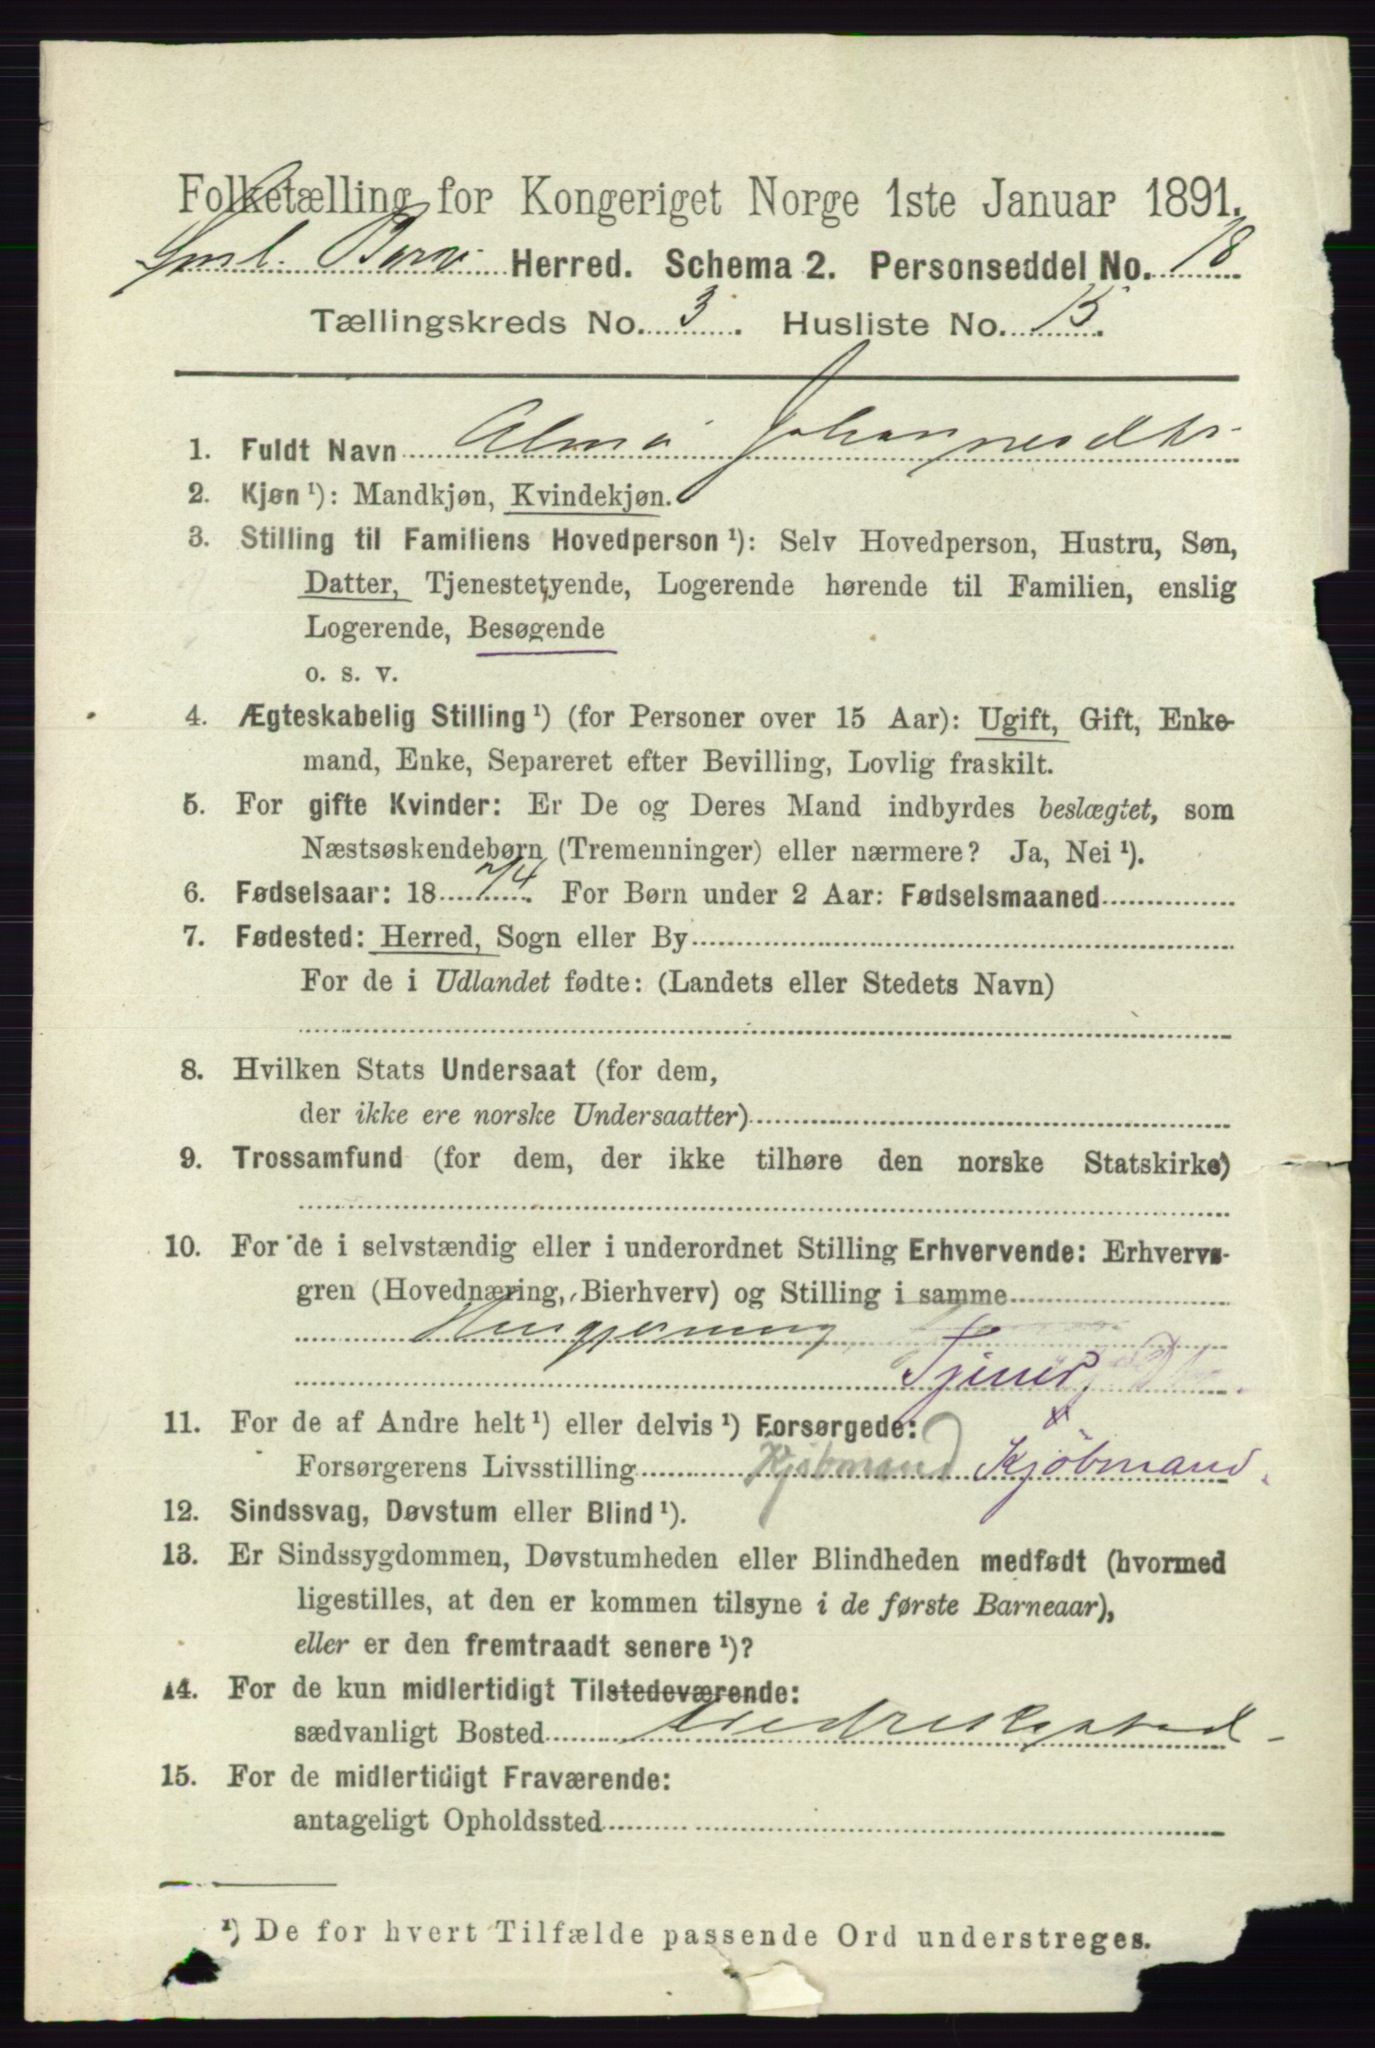 Folketælling for Kongeriget Norge 1ste Januar 1891.
Herred. Schema 2. Personseddel No. 18
Tællingskreds No. 3. Husliste No. 15.
1. Fuldt Navn Alma Johannesdtr
2. Kjøn ¹): Mandkjøn, Kvindekjøn.
3. Stilling til Familiens Hovedperson ¹): Selv Hovedperson, Hustru, Søn,
Datter, Tjenestetyende, Logerende hørende til Familien, enslig
Logerende, Besøgende
o. s. v.
4. Ægteskabelig Stilling ¹) (for Personer over 15 Aar): Ugift, Gift, Enke-
mand, Enke, Separeret efter Bevilling, Lovlig fraskilt.
5. For gifte Kvinder: Er De og Deres Mand indbyrdes beslægtet, som
Næstsøskendebørn (Tremenninger) eller nærmere? Ja, Nei ¹).
6. Fødselsaar: 1874. For Børn under 2 Aar: Fødselsmaaned
7. Fødested: Herred, Sogn eller By
For de i Udlandet fødte: (Landets eller Stedets Navn)
8. Hvilken Stats Undersaat (for dem,
der ikke ere norske Undersaatter)
9. Trossamfund (for dem, der ikke tilhøre den norske Statskirke)
10. For de i selvstændig eller i underordnet Stilling Erhvervende: Erhvervs-
gren (Hovednæring, Bierhverv) og Stilling i samme
Husgjerning
Tjener
11. For de af Andre helt ¹) eller delvis ¹) Forsørgede:
Forsørgerens Livsstilling Kjøbmand Kjøbmand.
12. Sindssvag, Døvstum eller Blind ¹).
13. Er Sindssygdommen, Døvstumheden eller Blindheden medfødt (hvormed
ligestilles, at den er kommen tilsyne i de første Barneaar),
eller er den fremtraadt senere ¹)?
14. For de kun midlertidigt Tilstedeværende:
sædvanligt Bosted Fredrikstad
15. For de midlertidigt Fraværende:
antageligt Opholdssted
¹) De for hvert Tilfælde passende Ord understreges.